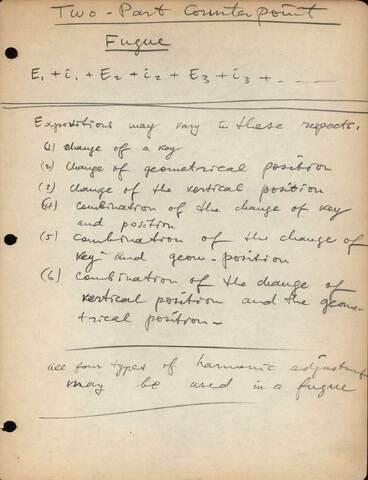 Two-Part Counterpoint
Fugue
E₁ + i₁ + E₂ + i₂ + E₃ + i₃ + - - - -
Expositions may vary in these respects:
(1) change of a key
(2) change of geometrical position
(3) change of the vertical position
(4) combination of the change of key
and position
(5) combination of the change of
key and geom-position
(6) combination of the change of
vertical position and the geome-
trical position-
all four types of harmonic adjustment
may be used in a fugue